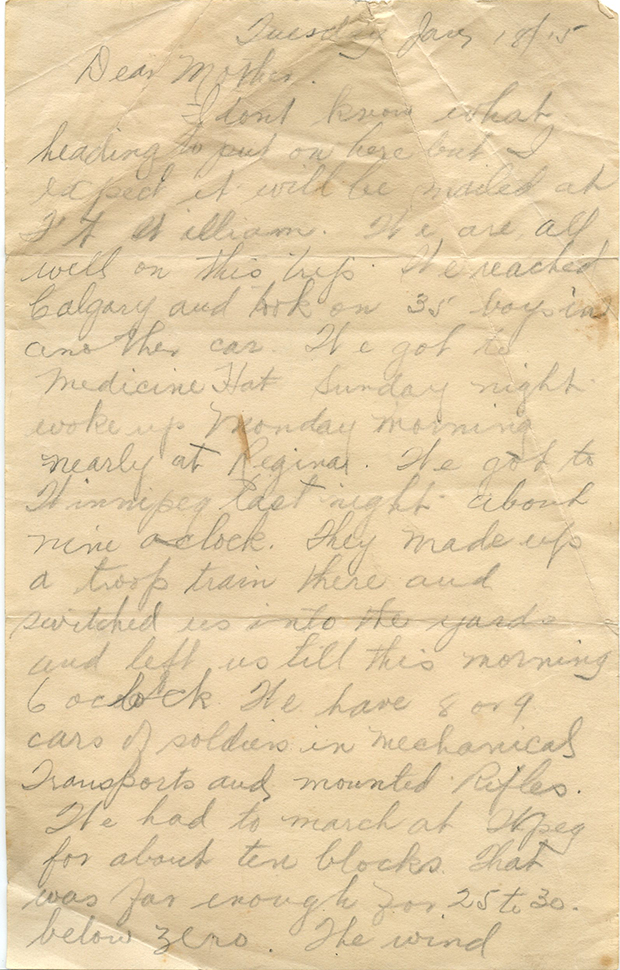 Tuesday Jan 18/15
Dear Mother.
I dont know what
heading to put on here but I
expect it will be mailed at
Ft William. We are all
well on this trip. We reached
Calgary and took on 35 boys in
another car. We got to
Medicine Hat Sunday night
woke up Monday morning
nearly at Regina. We got to
Winnipeg last night about
nine oclock. They made up
a troop train there and
switched us into the yards
and left us till this morning
6 oclock. We have 8 or 9
cars of soldiers in mechanical
Transports and mounted Rifles.
We had to march at Wpeg
for about ten blocks. That
was far enough for 25 to 30.
below zero. The wind